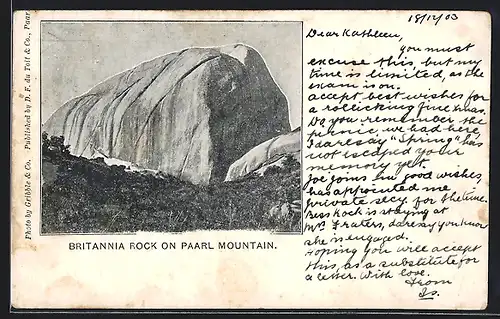 18/12/03
Dear Kathleen,
you must
excuse this, but my
time is limited, as the
exam is on.
accept best wishes for
a rollicking fine Xmas.
Do you remember the
picnic, we had here,
I daresay "Spring" has
not escaped your
memory yet.
Joe joins in good wishes,
has appointed me
private secy. for the time.
Bess Rock is staying at
Mrs Fraters, daresay you know
she is engaged.
Hoping you will accept
this, as a substitute for
a letter. With love.
From
Is.
BRITANNIA ROCK ON PAARL MOUNTAIN.
Photo by Gribble & Co. Published by D. F. du Toit & Co., Paarl